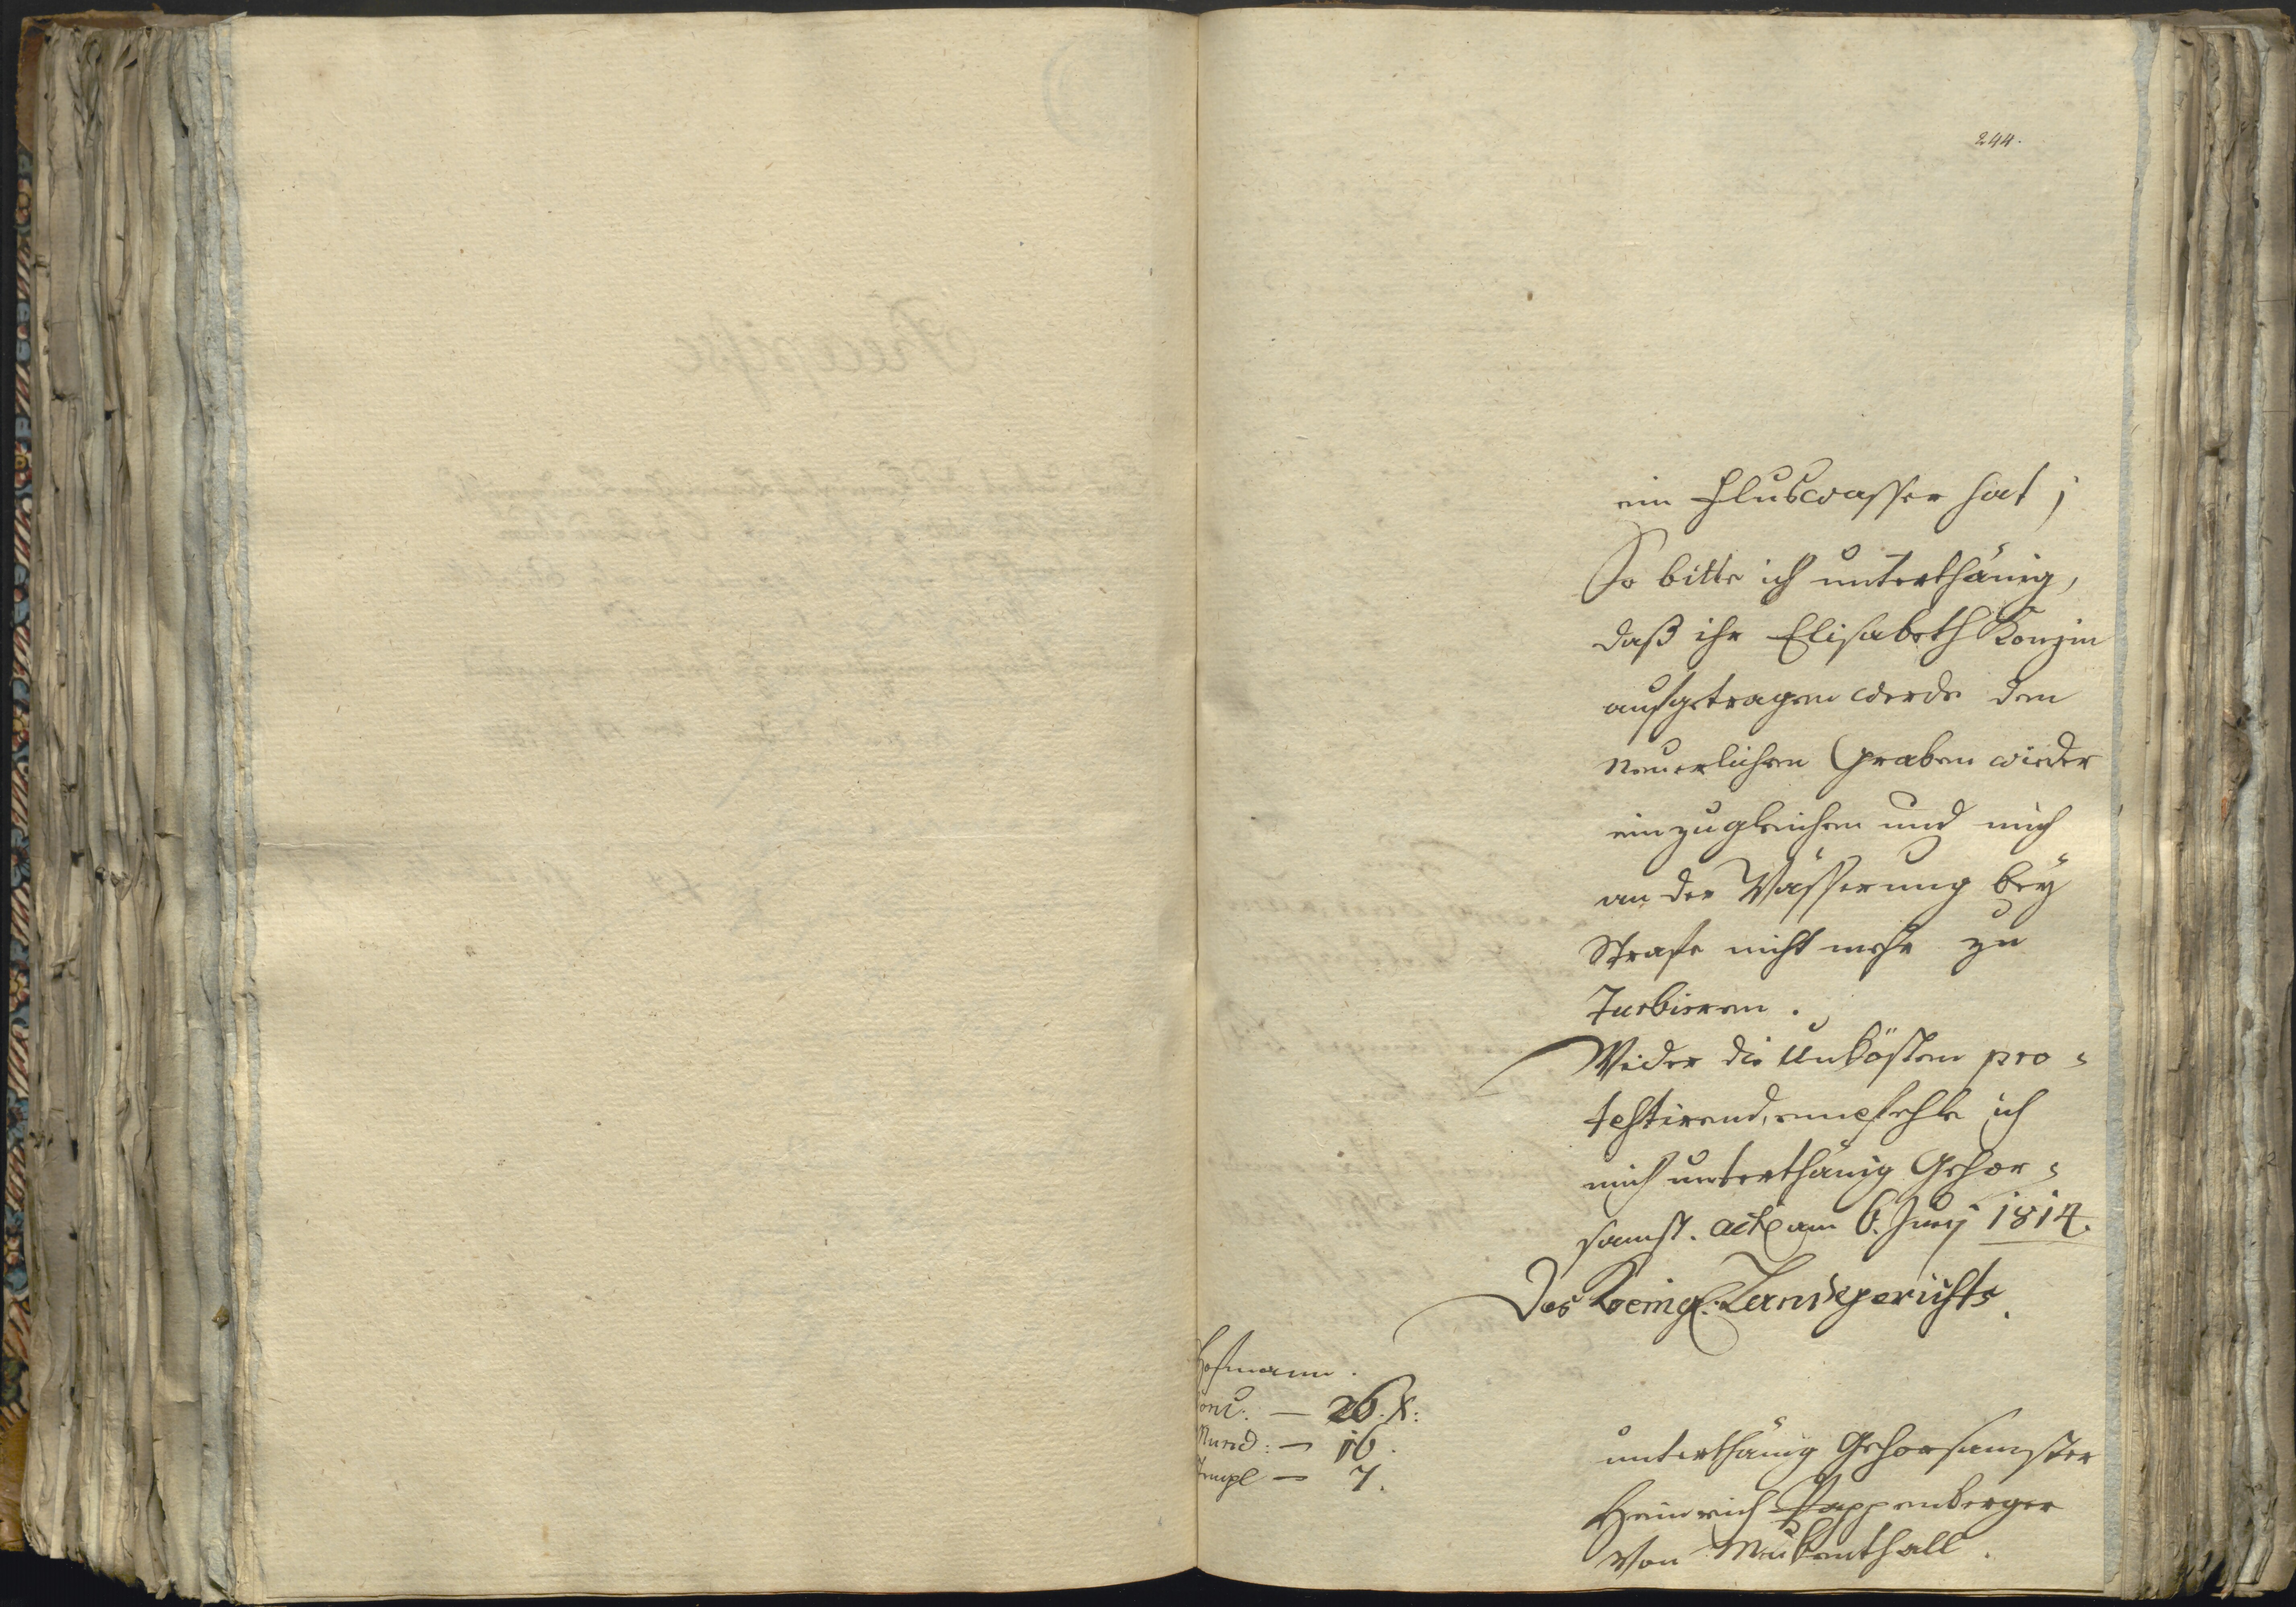 244.
ein Fluswasser hat;
So bitte ich unterthänig,
daß ihr Elisabeth Konzin
aufgetragen werde den
neuerlichen Graben wieder
einzugleichen und mich
an der Wässerung bey
Strafe nicht mehr zu
Turbieren.
Wider die Unkösten pro-
testirend, empfehle ich
mich unterthänig Gehor-
samst. act. am 6. Juny 1814.
Des Koenigl. Landgerichts.
Hofmann.
Conc. — 26. X:
Mund: — 16.
Stempl — 7.
unterthänig Gehorsamster
Heinrich Pappenberger
von Mukenthall.